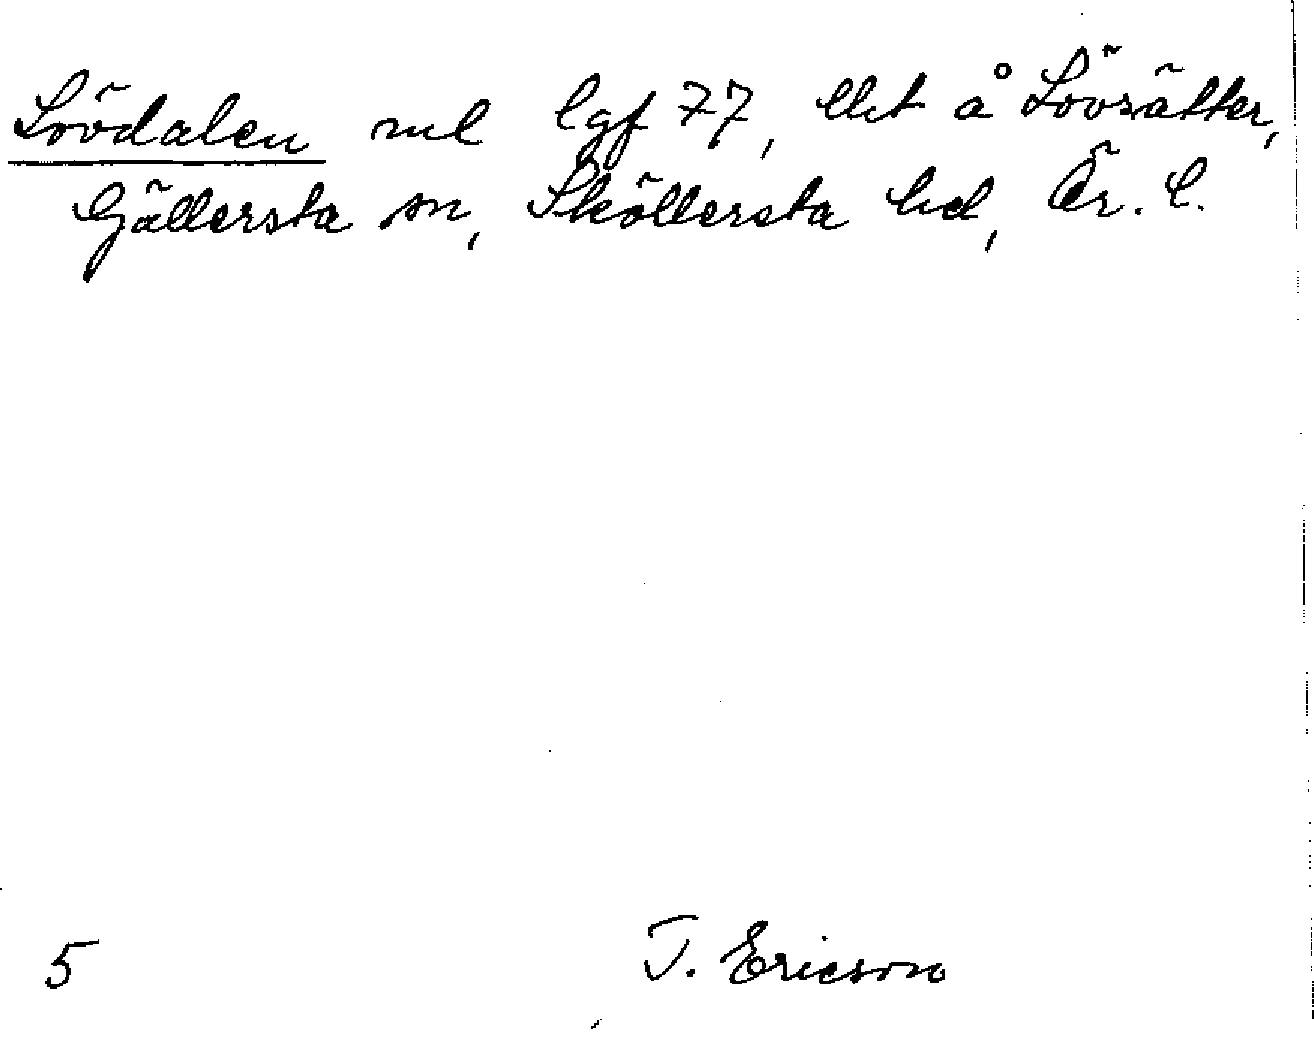 Lövdalen rul lgf 77, ägt å Lövsätter,
Gällersta sn, Sköllersta hd, Ör. l.
5 T. Ericson